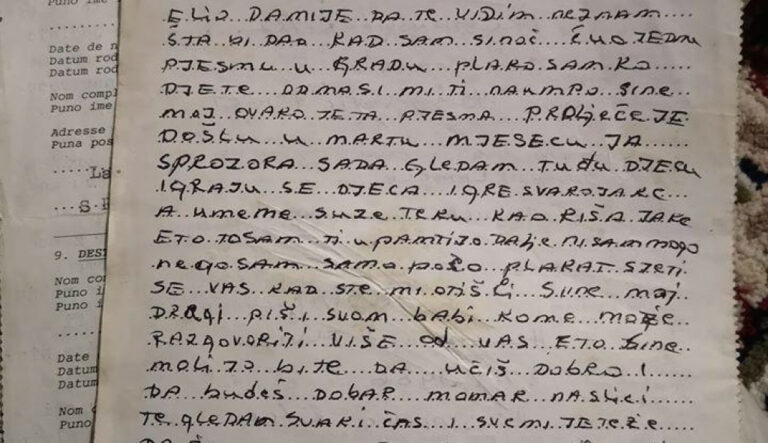 Puno ime
Date de n
Datum rod
Datum rod
Nom compl
Puno ime
Adresse
Puna pos
La
9. DEST
Nom con
Puno i
Puno i
Date
Datum
Datum
Nom c
Puno
ELIO DAMIJE DA TE VIDIM NEZNAM
ŠTA bi DAO KAD SAM SINOĆ ČUO JEDNU
PJESMU U GRADU PLAKO SAM KO
DJETE DOMASI MI TI NAUMPO SINE
MOJ OVAKO JE TA PJESMA PROLJEĆE JE
DOŠLO U MARTU MJESECU JA
SPROZORA SADA GLEDAM TUĐU DJECU
IGRAJU SE DJECA IGRE SVAKOJAKE
A UMENE SUZE TEKU KAO KIŠA JAKE
ETO TOSAM TI UPAMTIJO DALJE NISAM MOGO
NEGO SAM SAMO POČO PLAKAT SJETI
SE VAS KAD STE MI OTIŠLI SINE MOJ
DRAGI PIŠI SVOM BABI KOME MOŽE
RAZGOVORITI VIŠE OD VAS ETO SINE
MOLI TO BITE DA UČIŠ DOBRO I
DA BUDEŠ DOBAR MOMAK NA SLICI
TE GLEDAM SVAKI ČAS I SVE MI JE TEŽE